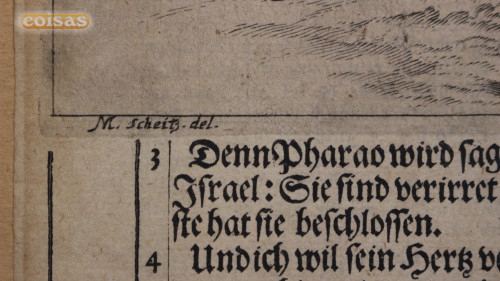 coisas
M. Scheitz. del.
3 Denn Pharao wird sag
Israel: Sie sind verirret
ste hat sie beschlossen.
4 Und ich wil sein Hertz ve